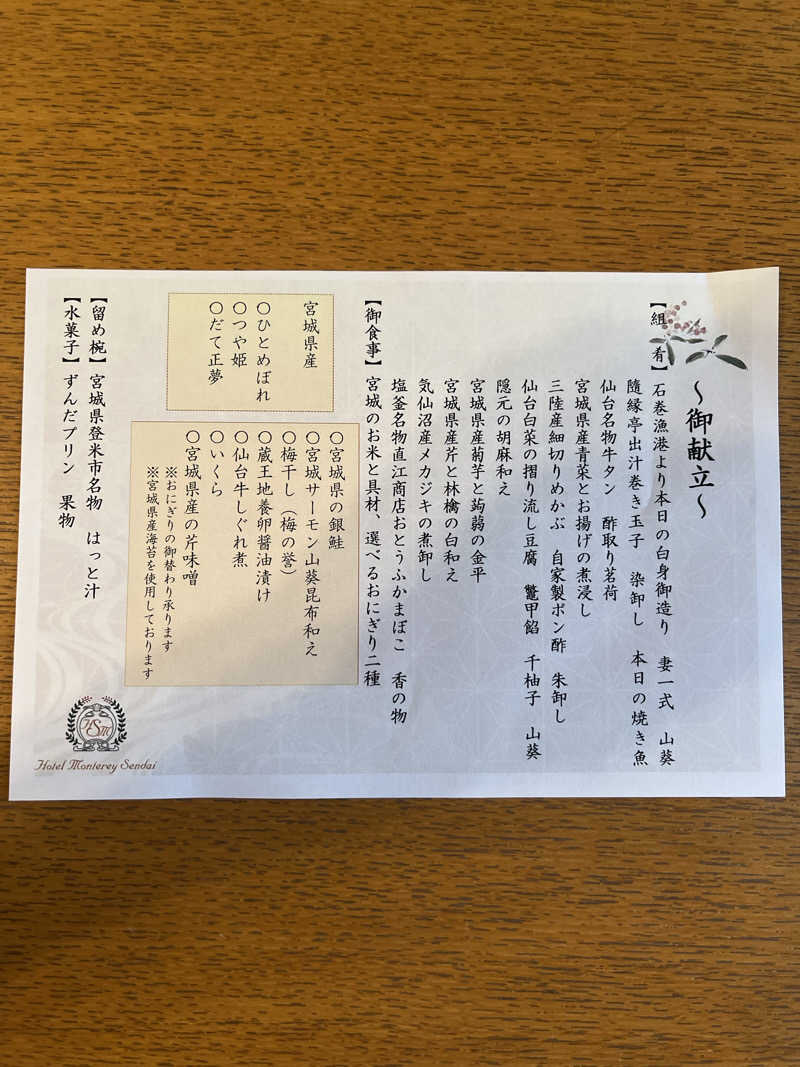 ～御献立～
【組　肴】 石巻漁港より本日の白身御造り　妻一式　山葵
随縁亭出汁巻き玉子　染卸し　本日の焼き魚
仙台名物牛タン　酢取り茗荷
宮城県産青菜とお揚げの煮浸し
三陸産細切りめかぶ　自家製ポン酢　朱卸し
仙台白菜の摺り流し豆腐　鼈甲餡　千柚子　山葵
隠元の胡麻和え
宮城県産菊芋と蒟蒻の金平
宮城県産芹と林檎の白和え
気仙沼産メカジキの煮卸し
塩釜名物直江商店おとうふかまぼこ　香の物
【御食事】 宮城のお米と具材、選べるおにぎり二種
宮城県産
〇ひとめぼれ
〇つや姫
〇だて正夢
〇宮城県の銀鮭
〇宮城サーモン山葵昆布和え
〇梅干し（梅の誉）
〇蔵王地養卵醤油漬け
〇仙台牛しぐれ煮
〇いくら
〇宮城県産の芹味噌
※おにぎりの御替わり承ります
※宮城県産海苔を使用しております
【留め椀】 宮城県登米市名物　はっと汁
【水菓子】 ずんだプリン　果物
HSM
Hotel Monterey Sendai